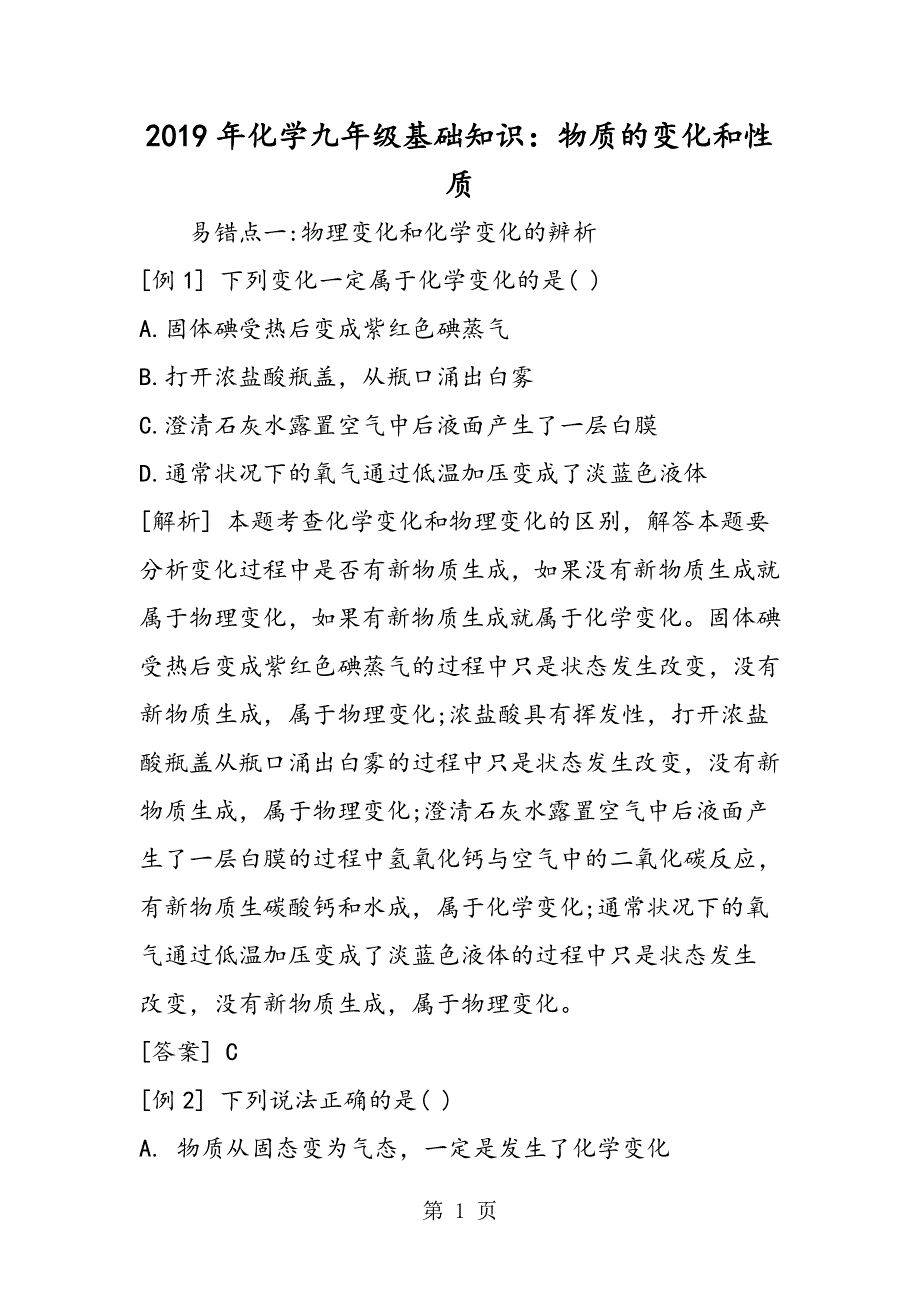 2019 年化学九年级基础知识：物质的变化和性
质
易错点一:物理变化和化学变化的辨析
[例1] 下列变化一定属于化学变化的是( )
A.固体碘受热后变成紫红色碘蒸气
B.打开浓盐酸瓶盖，从瓶口涌出白雾
C.澄清石灰水露置空气中后液面产生了一层白膜
D.通常状况下的氧气通过低温加压变成了淡蓝色液体
[解析] 本题考查化学变化和物理变化的区别，解答本题要
分析变化过程中是否有新物质生成，如果没有新物质生成就
属于物理变化，如果有新物质生成就属于化学变化。固体碘
受热后变成紫红色碘蒸气的过程中只是状态发生改变，没有
新物质生成，属于物理变化;浓盐酸具有挥发性，打开浓盐
酸瓶盖从瓶口涌出白雾的过程中只是状态发生改变，没有新
物质生成，属于物理变化;澄清石灰水露置空气中后液面产
生了一层白膜的过程中氢氧化钙与空气中的二氧化碳反应，
有新物质生碳酸钙和水成，属于化学变化;通常状况下的氧
气通过低温加压变成了淡蓝色液体的过程中只是状态发生
改变，没有新物质生成，属于物理变化。
[答案] C
[例2] 下列说法正确的是( )
A. 物质从固态变为气态，一定是发生了化学变化
第 1 页